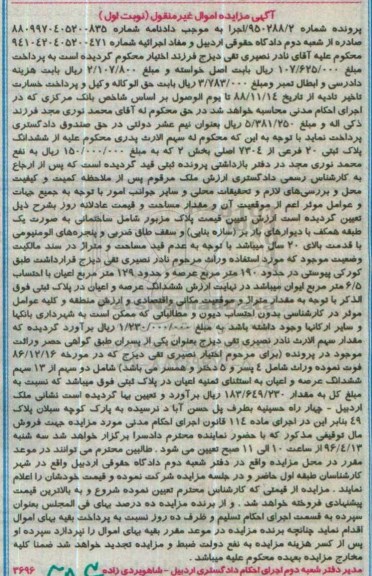 آگهی مزایده اموال غیرمنقول (نوبت اول)
پرونده شماره ۹۵۰۲۸۸/۲اجرا به موجب دادنامه شماره ۸۸۰۹۹۷۰۴۰۵۲۰۰۸۳۵
صادره از شعبه دوم دادگاه حقوقی اردبیل و مفاد اجرائیه شماره ۹۴۱۰۴۲۰۴۰۵۲۰۰۴۷۱
محکوم علیه آقای نادر نصیری تقی دیزج فرزند اختیار محکوم گردیده است به پرداخت
مبلغ ۱۰۷/۶۲۵/۰۰۰ ریال بابت اصل خواسته و مبلغ ۲/۱۰۷/۸۰۰ ریال بابت هزینه
دادرسی و ابطال تمبر ومبلغ ۳/۷۸۳/۰۰۰ ریال بابت حق الوکاله وکیل و پرداخت خسارت
تاخیر تادیه از تاریخ ۸۸/۱۱/۱۴ تا یوم الوصول بر اساس شاخص بانک مرکزی که در
اجرای احکام مدنی محاسبه خواهد شد در حق محکوم له آقای محمد نوری مجد فرزند
ذکی اله و مبلغ ۵/۳۸۱/۲۵۰ ریال بعنوان نیم عشر دولتی در حق صندوق دادگستری
پرداخت نماید با توجه به این که محکوم له سهم الارث پدری محکوم علیه از ششدانگ
پلاک ثبتی ۲۰ فرعی از ۷۳۰۴ اصلی بخش ۲ که به مبلغ ۱۵۰/۰۰۰/۰۰۰ ریال به نفع
محمد نوری مجد در دفتر بازداشتی پرونده ثبتی قید گردیده است که پس از ارجاع
به کارشناس رسمی دادگستری ارزش ملک مرقوم پس از ملاحظه کمیت و کیفیت
محل و بررسی‌های لازم و تحقیقات محلی و سایر جوانب امور با توجه به جمیع جهات
و عوامل موثر اعم از موقعیت آن و مقدار مساحت و قیمت عادلانه روز بشرح ذیل
تعیین گردیده است ارزش تعیین قیمت پلاک مزبور شامل ساختمانی به صورت یک
طبقه همکف با دیوارهای باربر (سازه بنایی) و سقف طاق ضربی و پنجره‌های آلومینیومی
با قدمت بالای ۲۰ سال میباشد با توجه به عدم قید مساحت و متراژ در سند مالکیت
وضعیت موجود که مورد استفاده وراث مرحوم نادر نصیری تقی دیزج قرارداشت طبق
کورکی پیوستی در حدود ۱۹۰ متر مربع عرصه و حدود ۱۲۹ متر مربع اعیان با احتساب
۶/۵ متر مربع ایوان میباشد در نهایت ارزش ششدانگ عرصه و اعیان در پلاک ثبتی فوق
الذکر با توجه به مقدار متراژ و موقعیت مکانی واقتصادی و ارزش منطقه و کلیه عوامل
موثر در کارشناسی بدون احتساب دیون و مطالباتی که ممکن است به شهرداری بانکها
و سایر ارکانها وجود داشته باشد به مبلغ ۱/۲۳۰/۰۰۰/۰۰۰ ریال برآورد گردیده که
مقدار سهم الارث نادر نصیری تقی دیزج بعنوان یکی از پسران طبق گواهی حصر وراثت
موجود در پرونده (برای مرحوم اختیار نصیری تقی دیزج که در مورخه ۸۶/۱۲/۱۶
فوت نموده وراث شامل ۴ پسر و ۵ دختر و همسر می باشد) شامل دو سهم از ۱۳ سهم
ششدانگ عرصه و اعیان به استثنای ثمنیه اعیان در پلاک ثبتی فوق میباشد که نسبت به
مبلغ کل به مقدار ۱۸۳/۶۴۹/۲۳۰ ریال برآورد و تعیین بها گردیده است نشانی ملک
اردبیل - چهار راه حسینیه بطرف پل حسن آبا د نرسیده به پارک کوچه سبلان پلاک
۴۹ بنابر این در اجرای ماده ۱۱۴ قانون اجرای احکام مدنی مورد مزایده جهت فروش
مال توقیفی مذکور که با حضور نماینده محترم دادسرا برگزار خواهد شد سه شنبه
۹۶/۴/۱۳ از ساعت ۱۰ الی ۱۱ صبح تعیین می شود. طالبین محترم می توانند در موعد
مقرر در محل مزایده واقع در دفتر شعبه دوم دادگاه حقوقی اردبیل واقع در شهر
کارشناسان طبقه اول حاضر و در جلسه مزایده شرکت نموده و قیمت خودشان را اعلام
نمایند. مزایده از قیمتی که کارشناس محترم تعیین نموده شروع و به بالاترین قیمت
پیشنهادی فروخته خواهد شد. و از برنده مزایده ده درصد بهای فی المجلس بعنوان
سپرده به قسمت اجرای احکام تسلیم و ظرف ده روز نسبت به پرداخت بقیه بهای اموال
اقدام نماید چنانچه برنده مزایده در موعد مقرر بقیه بهای اموال را نپردازد سپرده او
پس از کسر هزینه مزایده به نفع دولت ضبط و مزایده تجدید خواهد شد ضمنا کلیه
مخارج مزایده بعهده محکوم علیه میباشد.
مدیر دفتر شعبه دوم اجرای احکام دادگستری اردبیل - شاهویردی زاده ۳۶۹۶